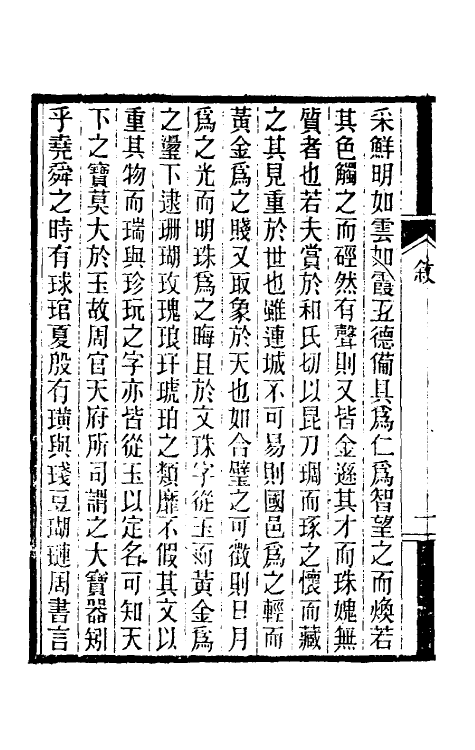 敘
采鮮明如雲如霞五德備具爲仁爲智望之而煥若
其色觸之而硜然有聲則又皆金遜其才而珠媿無
質者也若夫賞於和氏切以昆刀琱而琢之懷而藏
之其見重於世也雖連城不可易則國邑爲之輕而
黃金爲之賤又取象於天也如合璧之可徵則日月
爲之光而明珠爲之晦且於文珠字從玉而黃金爲
之璗下逮珊瑚玫瑰琅玕琥珀之類靡不假其文以
重其物而瑞與珍玩之字亦皆從玉以定名可知天
下之寶莫大於玉故周官天府所司謂之大寶器矧
乎堯舜之時有球琯夏殷有璜與琖豆瑚璉周書言